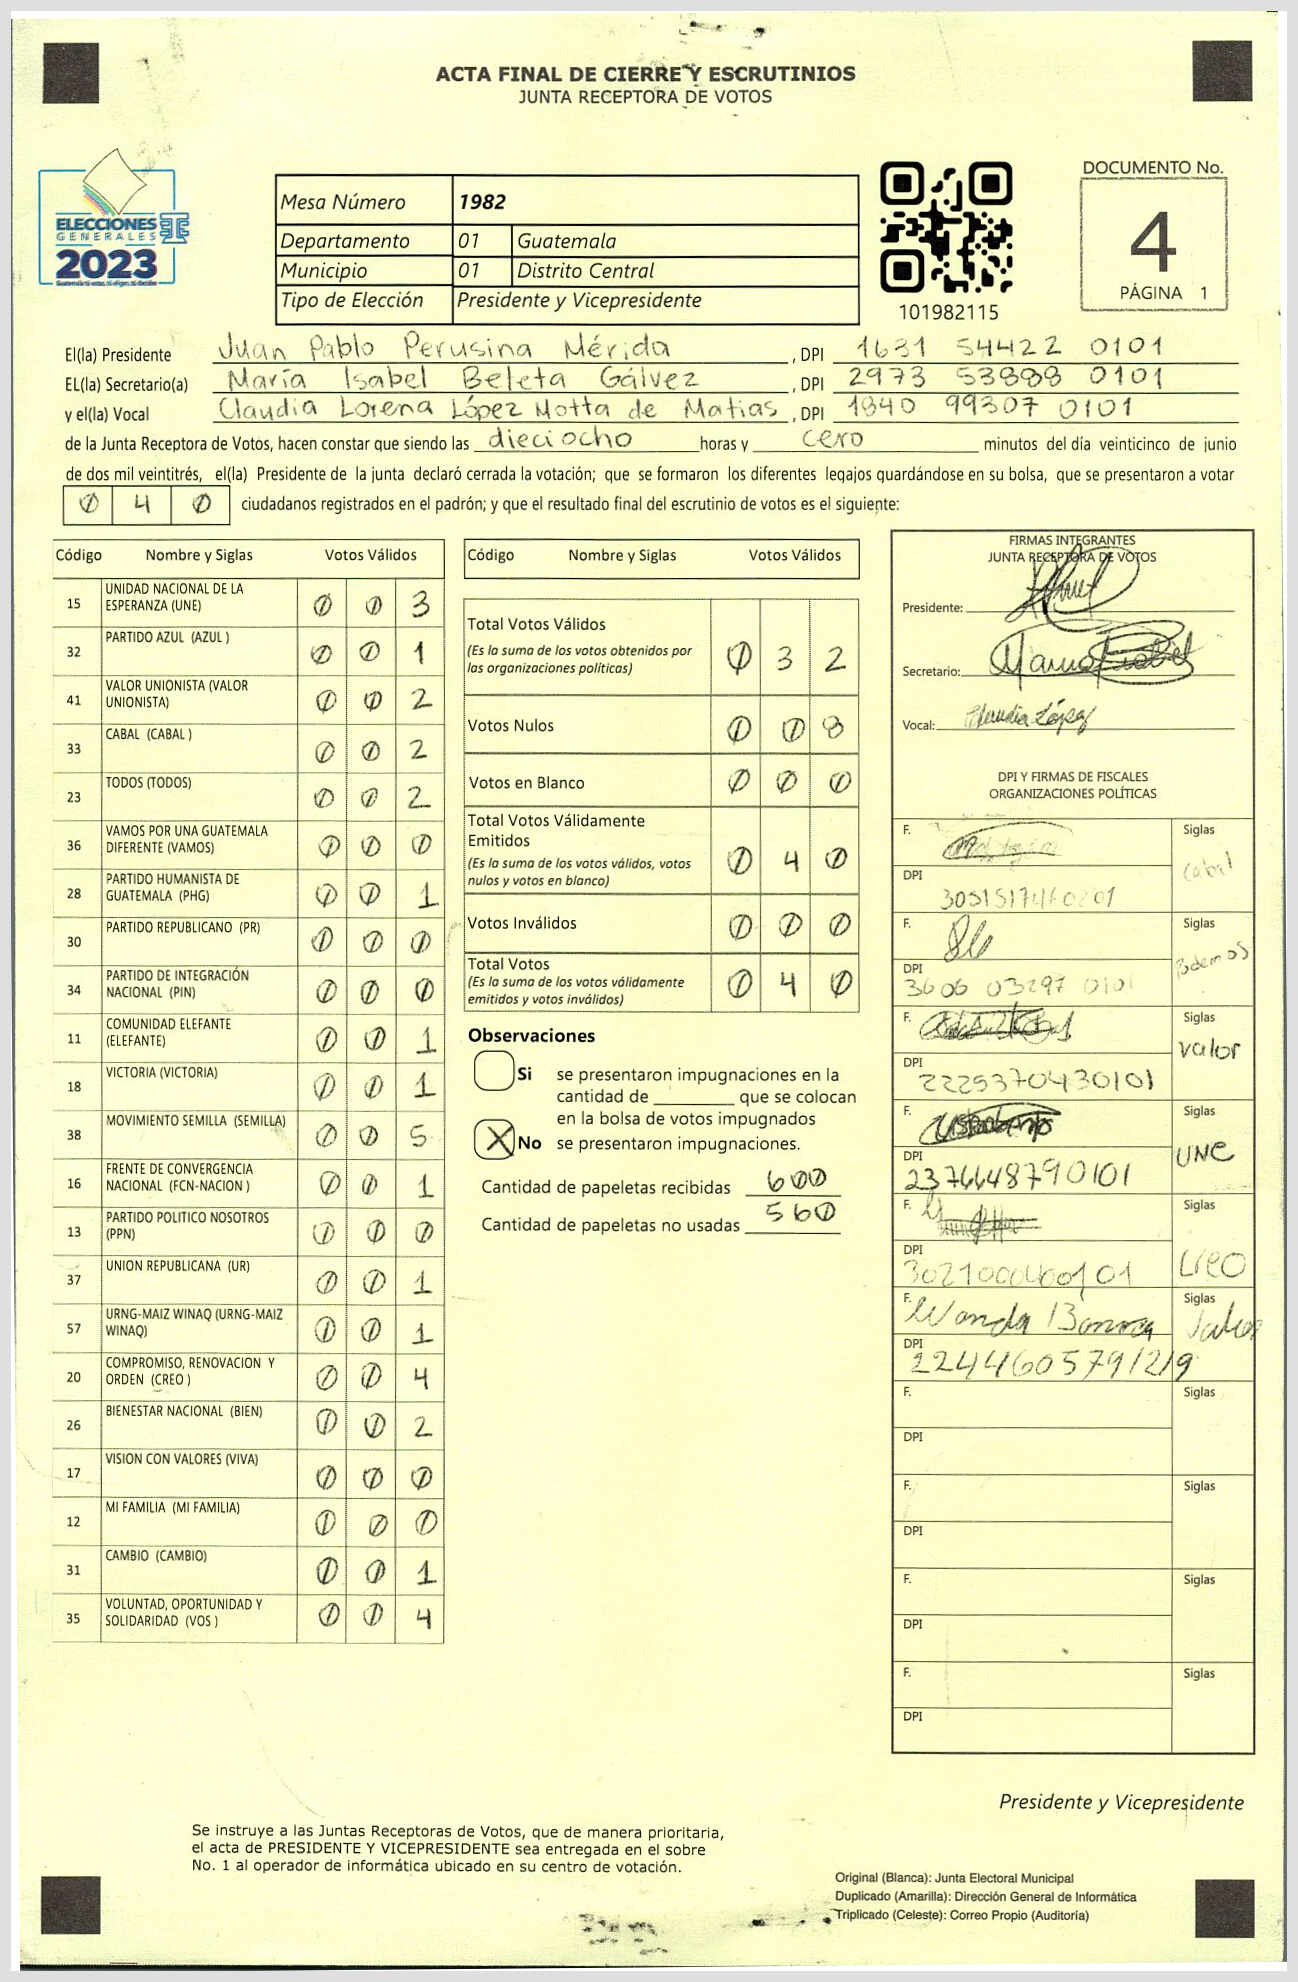 ACTA FINAL DE CIERRE Y ESCRUTINIOS
JUNTA RECEPTORA DE VOTOS
ELECCIONES
GENERALES
2023
Mesa Número 1982
Departamento 01 Guatemala
Municipio 01 Distrito Central
Tipo de Elección Presidente y Vicepresidente
101982115
DOCUMENTO No.
4
PÁGINA 1
El(la) Presidente Juan Pablo Perusina Mérida , DPI 1631 54422 0101
EL(la) Secretario(a) María Isabel Beleta Gálvez , DPI 2973 53888 0101
y el(la) Vocal Claudia Lorena López Motta de Matias , DPI 1840 99307 0101
de la Junta Receptora de Votos, hacen constar que siendo las dieciocho horas y cero minutos del día veinticinco de junio
de dos mil veintitrés, el(la) Presidente de la junta declaró cerrada la votación; que se formaron los diferentes legajos guardándose en su bolsa, que se presentaron a votar
0 4 0 ciudadanos registrados en el padrón; y que el resultado final del escrutinio de votos es el siguiente:
Código Nombre y Siglas Votos Válidos
15 UNIDAD NACIONAL DE LA ESPERANZA (UNE) 0 0 3
32 PARTIDO AZUL (AZUL ) 0 0 1
41 VALOR UNIONISTA (VALOR UNIONISTA) 0 0 2
33 CABAL (CABAL ) 0 0 2
23 TODOS (TODOS) 0 0 2
36 VAMOS POR UNA GUATEMALA DIFERENTE (VAMOS) 0 0 0
28 PARTIDO HUMANISTA DE GUATEMALA (PHG) 0 0 1
30 PARTIDO REPUBLICANO (PR) 0 0 0
34 PARTIDO DE INTEGRACIÓN NACIONAL (PIN) 0 0 0
11 COMUNIDAD ELEFANTE (ELEFANTE) 0 0 1
18 VICTORIA (VICTORIA) 0 0 1
38 MOVIMIENTO SEMILLA (SEMILLA) 0 0 5
16 FRENTE DE CONVERGENCIA NACIONAL (FCN-NACION ) 0 0 1
13 PARTIDO POLITICO NOSOTROS (PPN) 0 0 0
37 UNION REPUBLICANA (UR) 0 0 1
57 URNG-MAIZ WINAQ (URNG-MAIZ WINAQ) 0 0 1
20 COMPROMISO, RENOVACION Y ORDEN (CREO ) 0 0 4
26 BIENESTAR NACIONAL (BIEN) 0 0 2
17 VISION CON VALORES (VIVA) 0 0 0
12 MI FAMILIA (MI FAMILIA) 0 0 0
31 CAMBIO (CAMBIO) 0 0 1
35 VOLUNTAD, OPORTUNIDAD Y SOLIDARIDAD (VOS ) 0 0 4
Código Nombre y Siglas Votos Válidos
Total Votos Válidos 0 3 2
(Es la suma de los votos obtenidos por
las organizaciones políticas)
Votos Nulos 0 0 8
Votos en Blanco 0 0 0
Total Votos Válidamente
Emitidos 0 4 0
(Es la suma de los votos válidos, votos
nulos y votos en blanco)
Votos Inválidos 0 0 0
Total Votos 0 4 0
(Es la suma de los votos válidamente
emitidos y votos inválidos)
Observaciones
Si se presentaron impugnaciones en la
cantidad de ________ que se colocan
en la bolsa de votos impugnados
X No se presentaron impugnaciones.
Cantidad de papeletas recibidas 600
Cantidad de papeletas no usadas 560
FIRMAS INTEGRANTES
JUNTA RECEPTORA DE VOTOS
Presidente:
Secretario:
Vocal: Claudia López
DPI Y FIRMAS DE FISCALES
ORGANIZACIONES POLÍTICAS
F. Siglas Cabal
DPI
F. Siglas Podemos
DPI 3606 03297 0101
F. Siglas Valor
DPI 2225370430101
F. Siglas UNE
DPI 2376648790101
F. Siglas Creo
DPI
F. Wanda Siglas
DPI
F. Siglas
DPI
F. Siglas
DPI
F. Siglas
DPI
F. Siglas
DPI
Presidente y Vicepresidente
Se instruye a las Juntas Receptoras de Votos, que de manera prioritaria,
el acta de PRESIDENTE Y VICEPRESIDENTE sea entregada en el sobre
No. 1 al operador de informática ubicado en su centro de votación.
Original (Blanca): Junta Electoral Municipal
Duplicado (Amarilla): Dirección General de Informática
Triplicado (Celeste): Correo Propio (Auditoría)